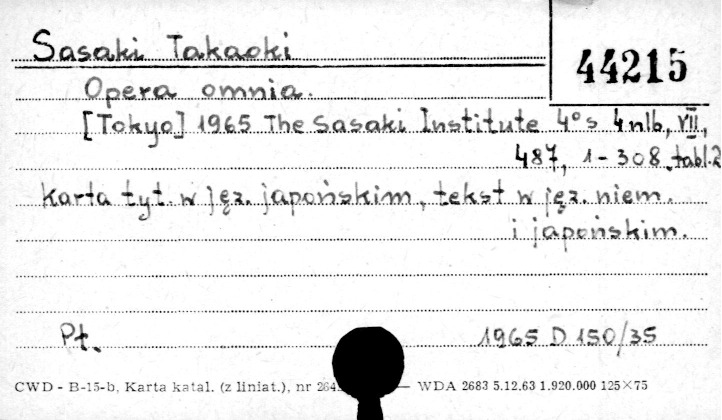 Sasaki Takaoki
44215
Opera omnia.
[Tokyo] 1965 The Sasaki Institute 4°s 4 nlb, VII,
487, 1-308, tabl. 2
Karta tyt. w jęz. japońskim, tekst w jęz. niem.
i japońskim.
Pt.
1965 D 150/35
CWD - B-15-b, Karta katal. (z liniat.), nr — WDA 2683 5.12.63 1.920.000 125×75